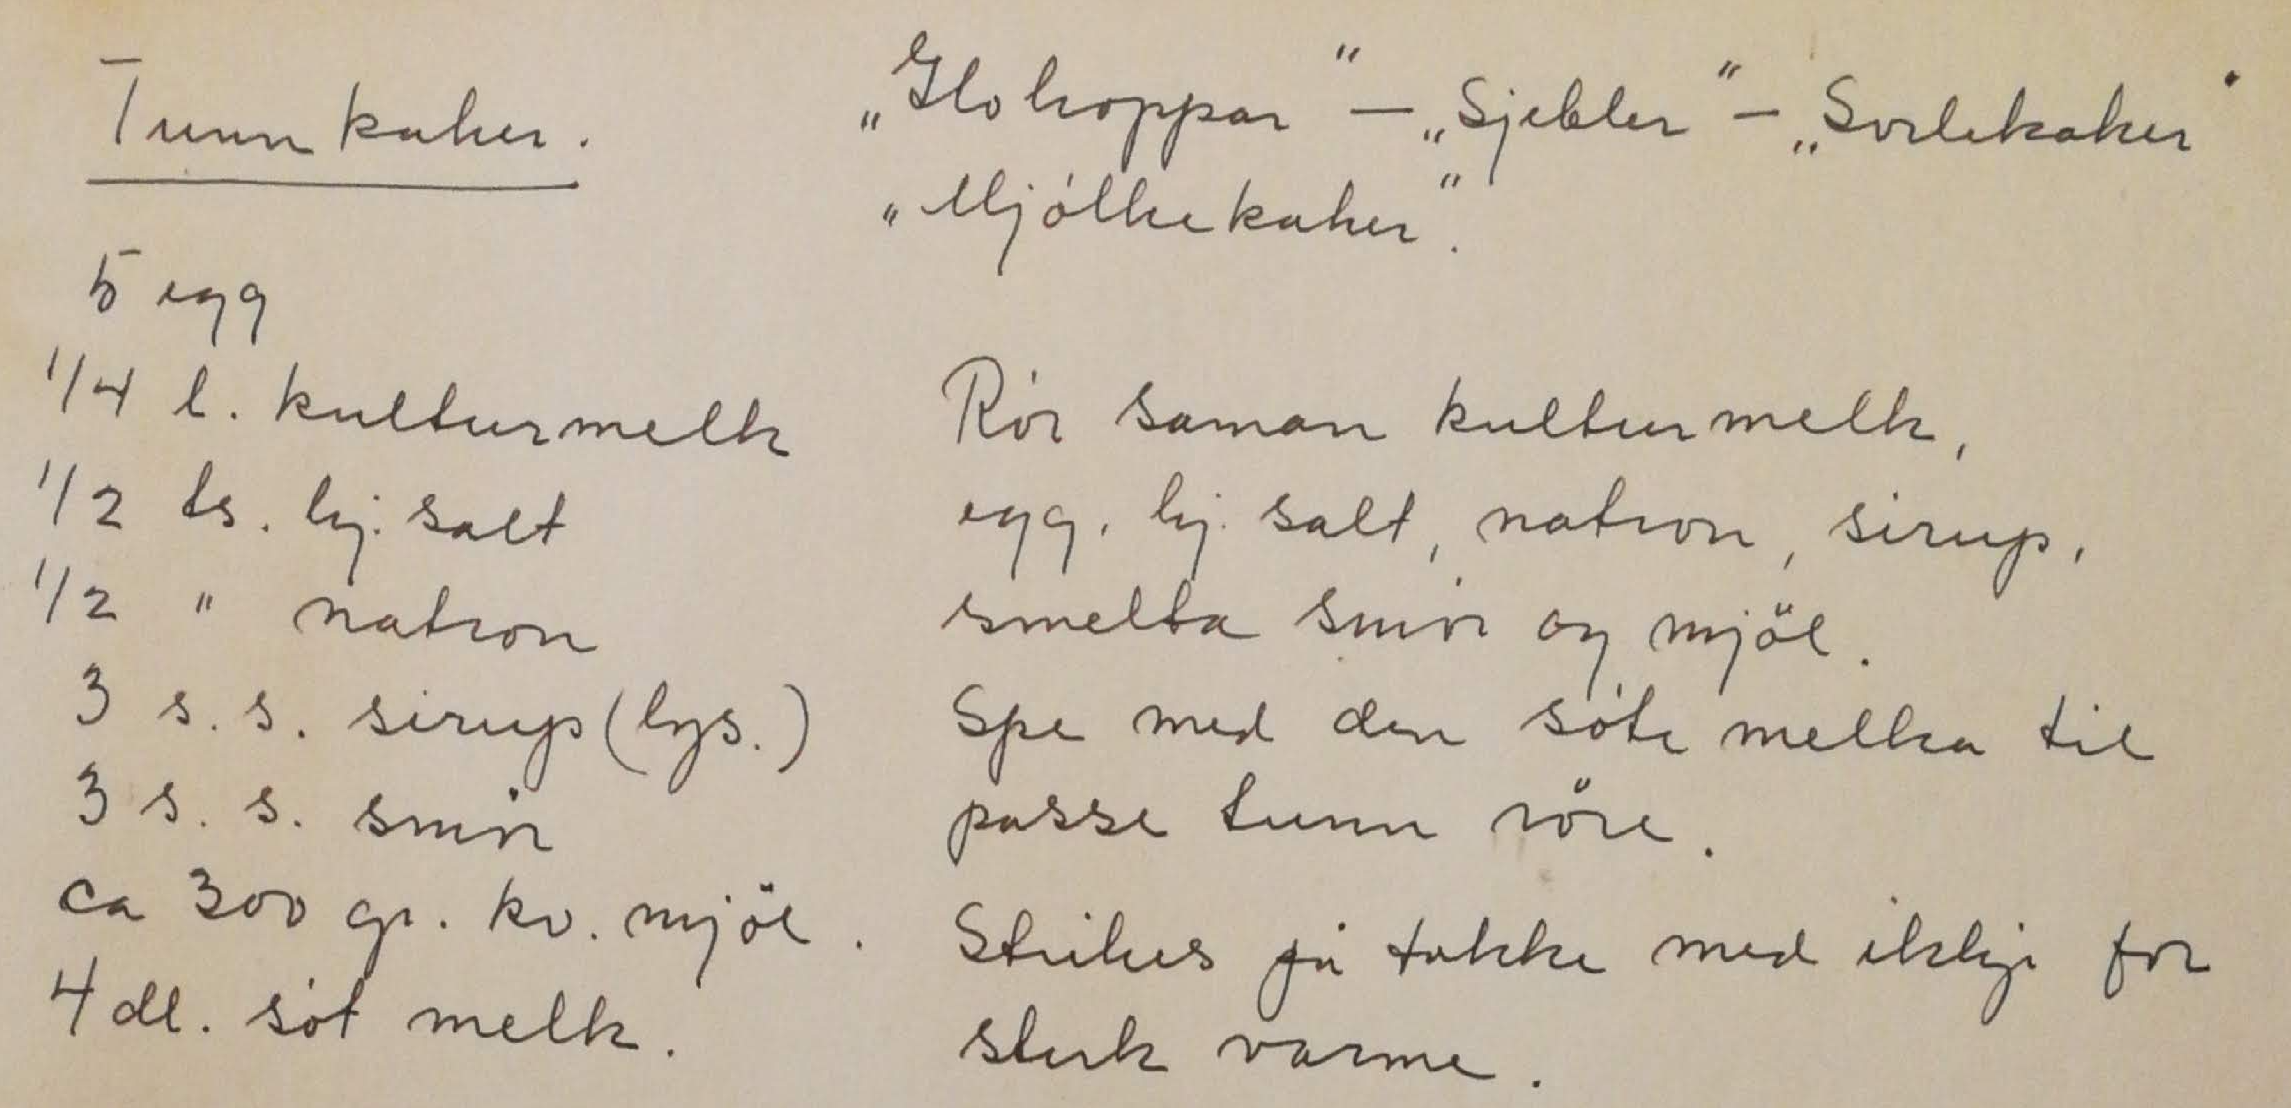 Tunnkaker.
„Glohoppar" – „Sjebler" – „Svelekaker"
„Mjölkekaker".
5 egg
1/4 l. kulturmelk
1/2 ts. hj. salt
1/2 " natron
3 s. s. sirup (lys.)
3 s. s. smör
ca 300 gr. kv. mjöl.
4 dl. söt melk.
Rör saman kulturmelk,
egg, hj. salt, natron, sirup,
smelta smör og mjöl.
Spe med den söte melka til
passe tunn röre.
Stekes på takke med ikkje for
sterk varme.